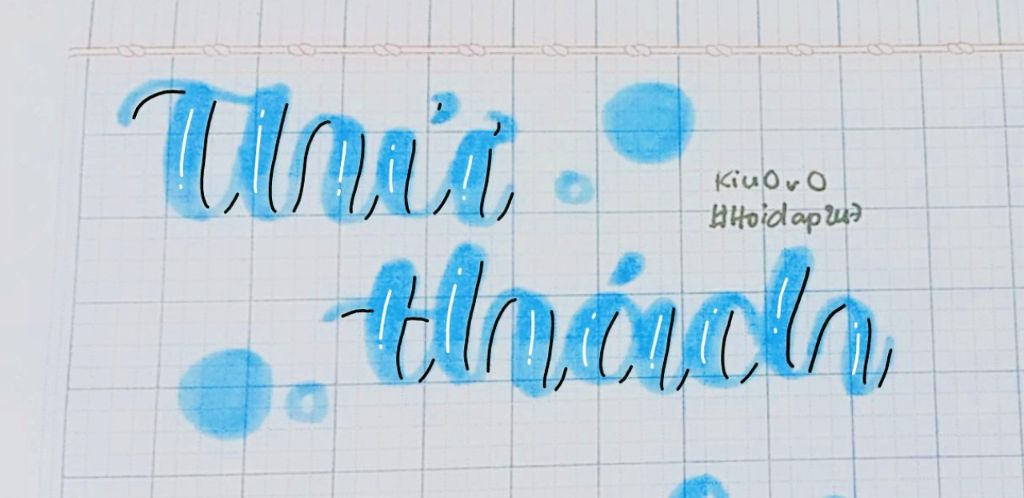 Thử
KiuOvO
#Hoidap247
thách